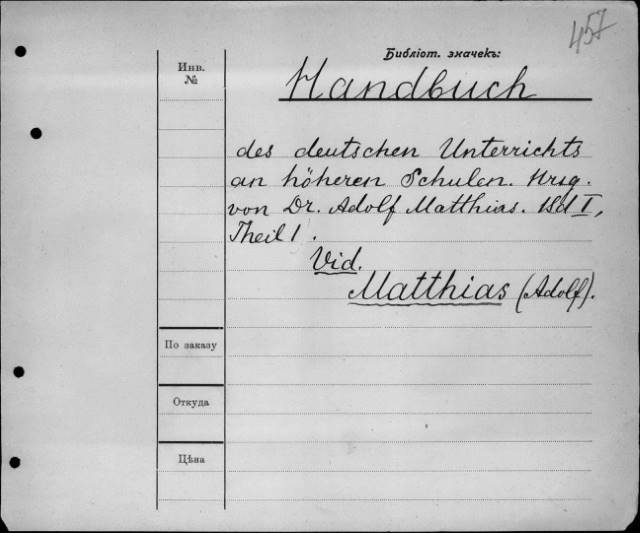 457
Библіот. значекъ:
Инв.
№
Handbuch
des deutschen Unterrichts
an höheren Schulen. Hrsg.
von Dr. Adolf Matthias. Bd I,
Theil 1.
Vid.
Matthias (Adolf).
По заказу
Откуда
Цѣна